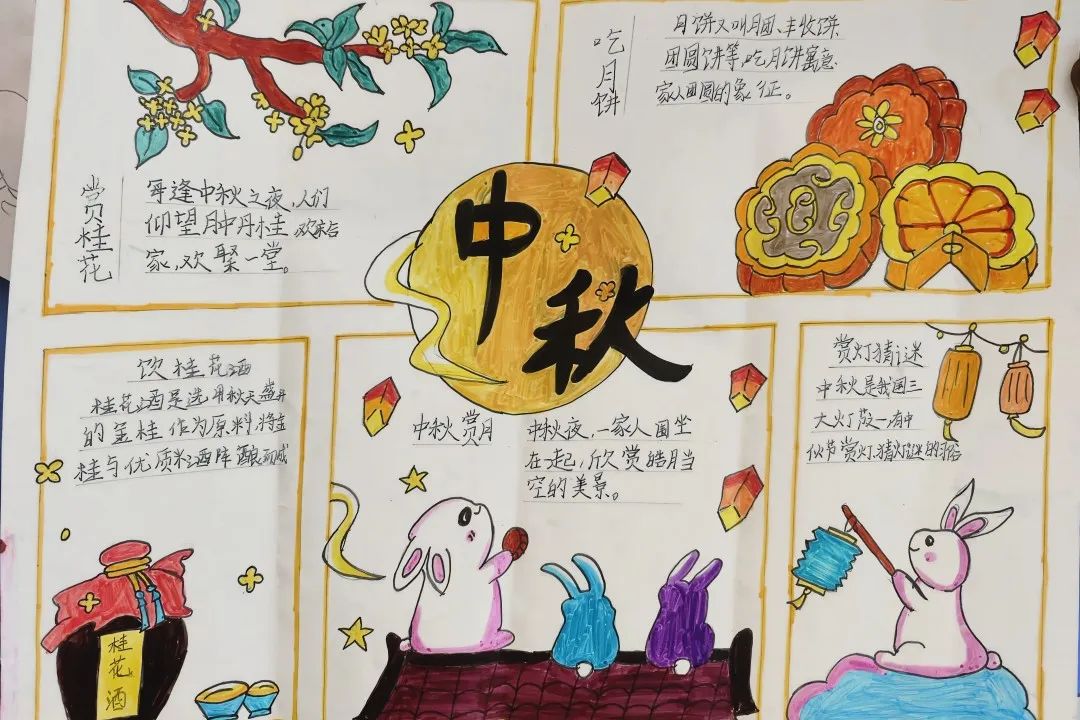 吃月饼
月饼又叫月团、丰收饼
团圆饼等,吃月饼寓意
家人团圆的象征。
赏桂花
每逢中秋之夜,人们
仰望月中丹桂,欢来后
家,欢聚一堂。
中秋
饮桂花酒
桂花酒是选用秋天盛开
的金桂作为原料,将金
桂与优质米酒陈酿而成
中秋赏月
中秋夜,一家人围坐
在一起,欣赏皓月当
空的美景。
赏灯猜谜
中秋是我国三
大灯节之一,有中
伙节赏灯,猜灯谜的习俗
桂花酒